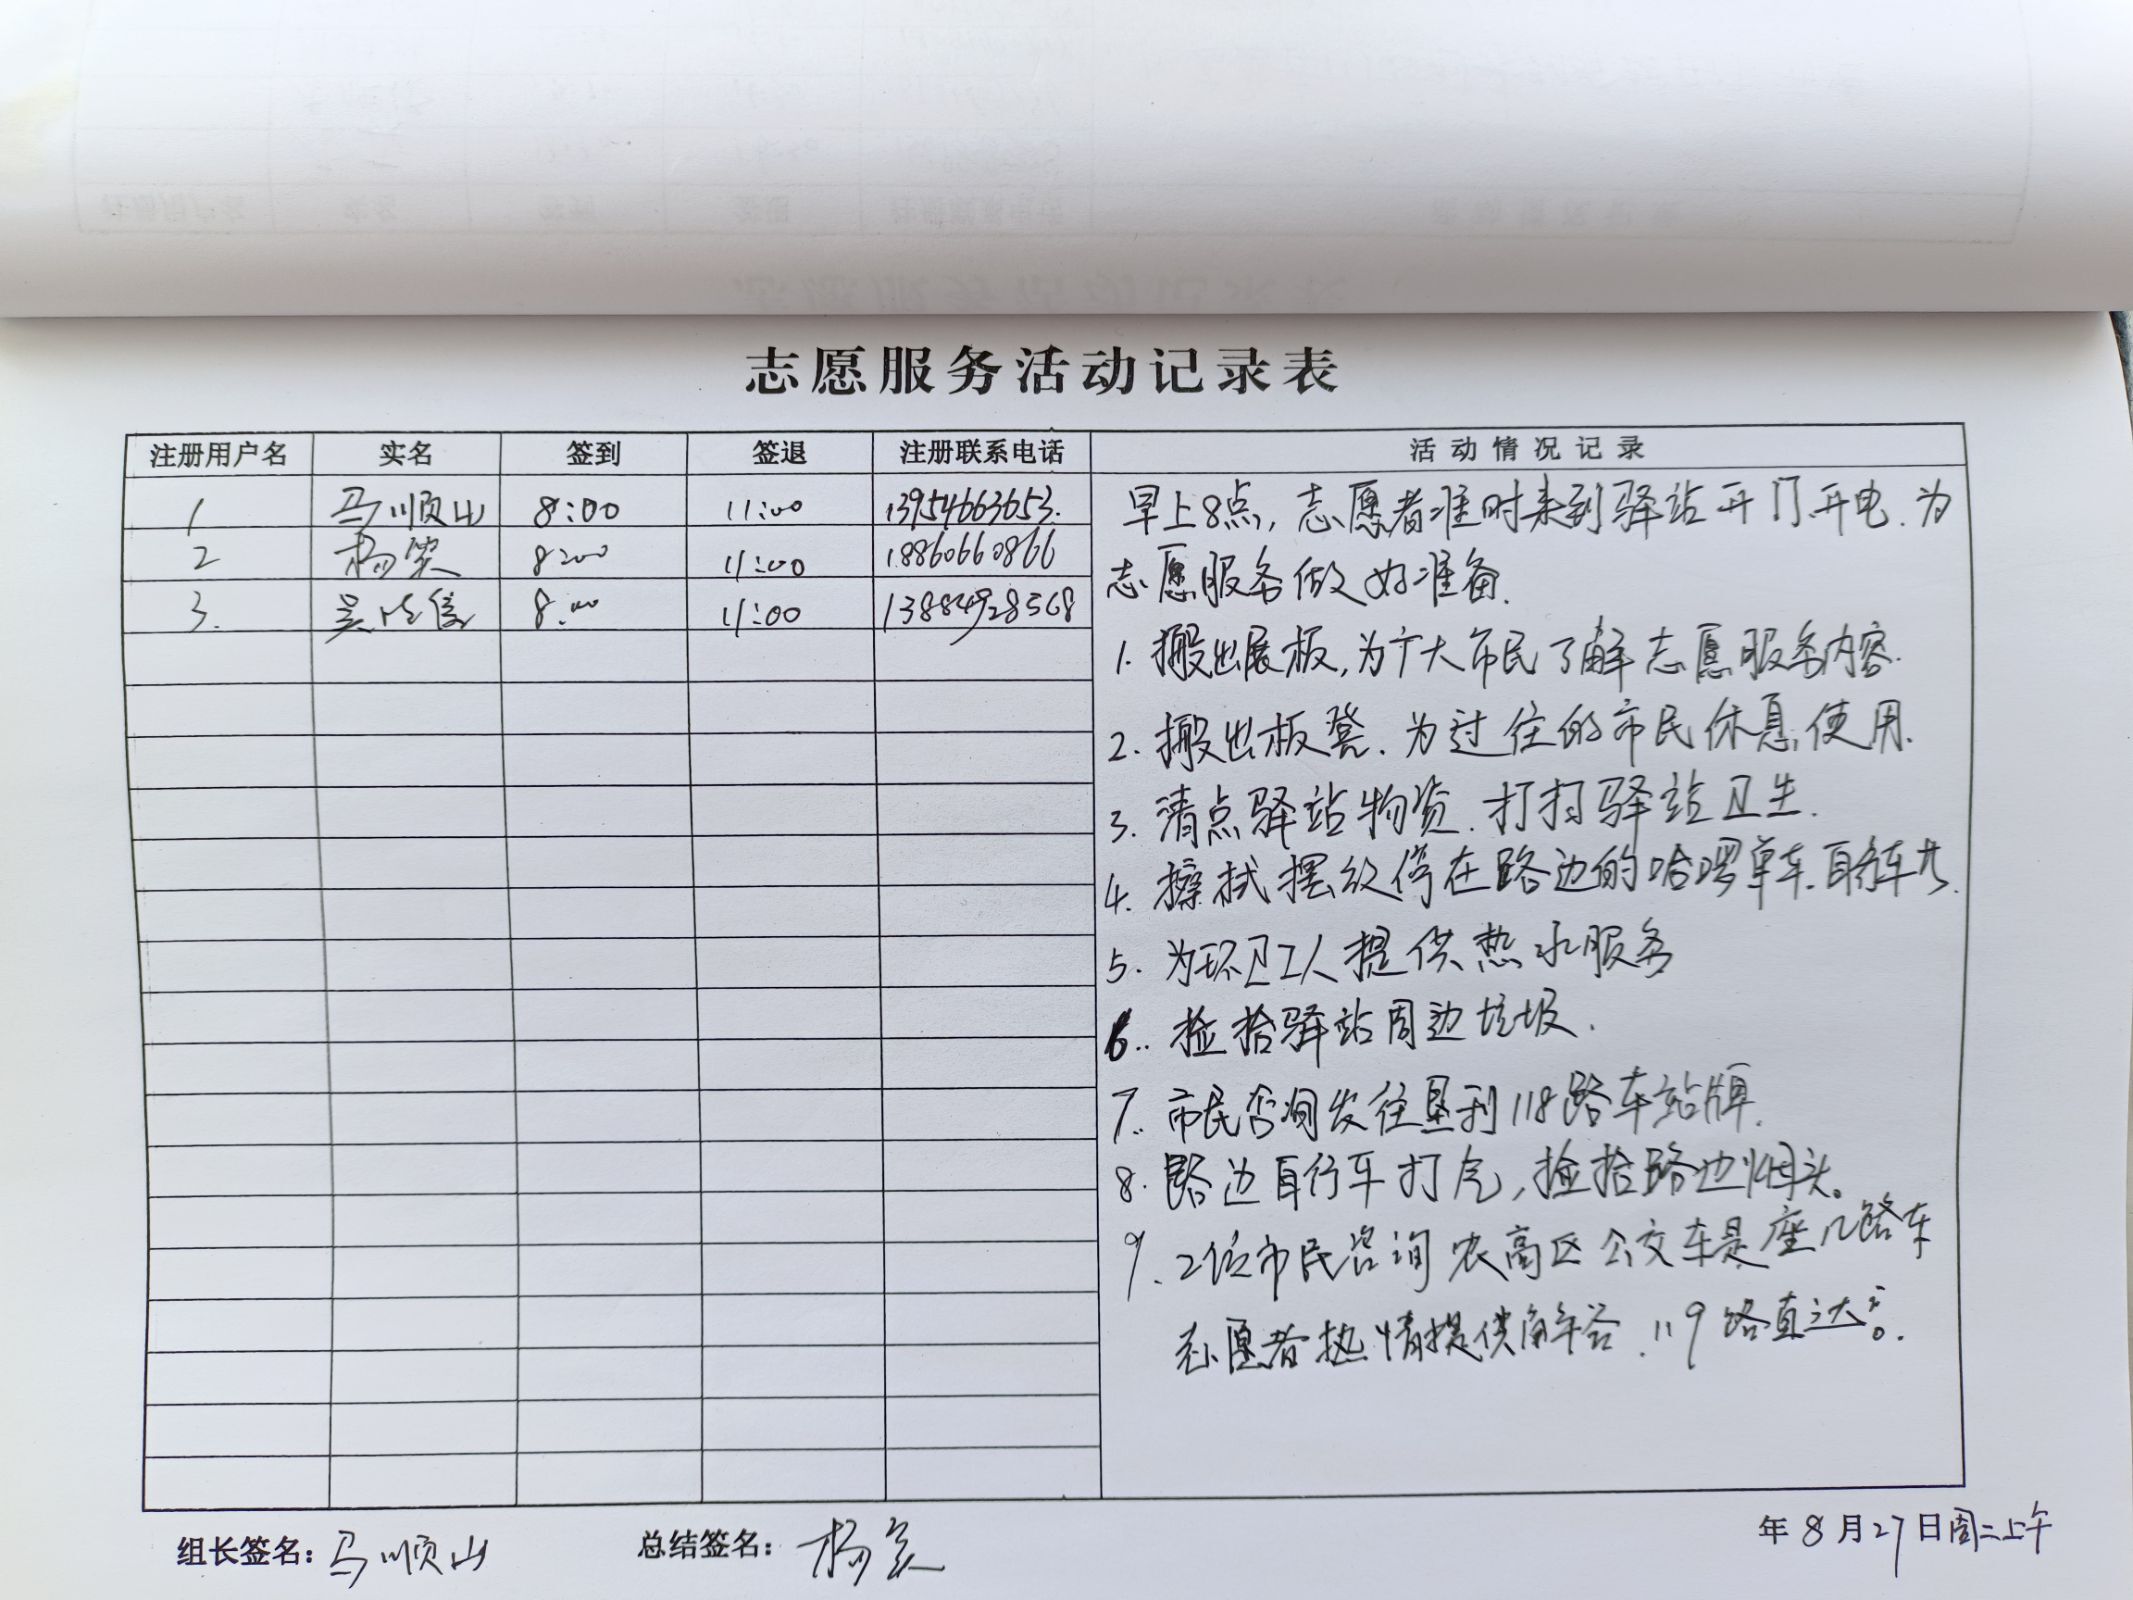 志愿服务活动记录表
注册用户名 实名 签到 签退 注册联系电话 活动情况记录
1 马顺山 8:00 11:00 13954663653.
2 杨 8:00 11:00 18860660866
3. 吴 8:00 11:00 13884928568
早上8点,志愿者准时来到驿站开门、开电.为
志愿服务做好准备.
1. 搬出展板,为广大市民了解志愿服务内容.
2. 搬出板凳.为过往的市民休息,使用.
3. 清点驿站物资.打扫驿站卫生.
4. 擦拭摆放停在路边的哈啰单车.自行车
5. 为环卫工人提供热水服务
6.. 捡拾驿站周边垃圾.
7. 市民咨询发往垦利118路车站牌.
8. 路边自行车打气,捡拾路边烟头。
9. 2位市民咨询农高区公交车是座几路车
志愿者热情提供解答.119路直达.
组长签名:马顺山 总结签名:杨 年8月27日周二上午